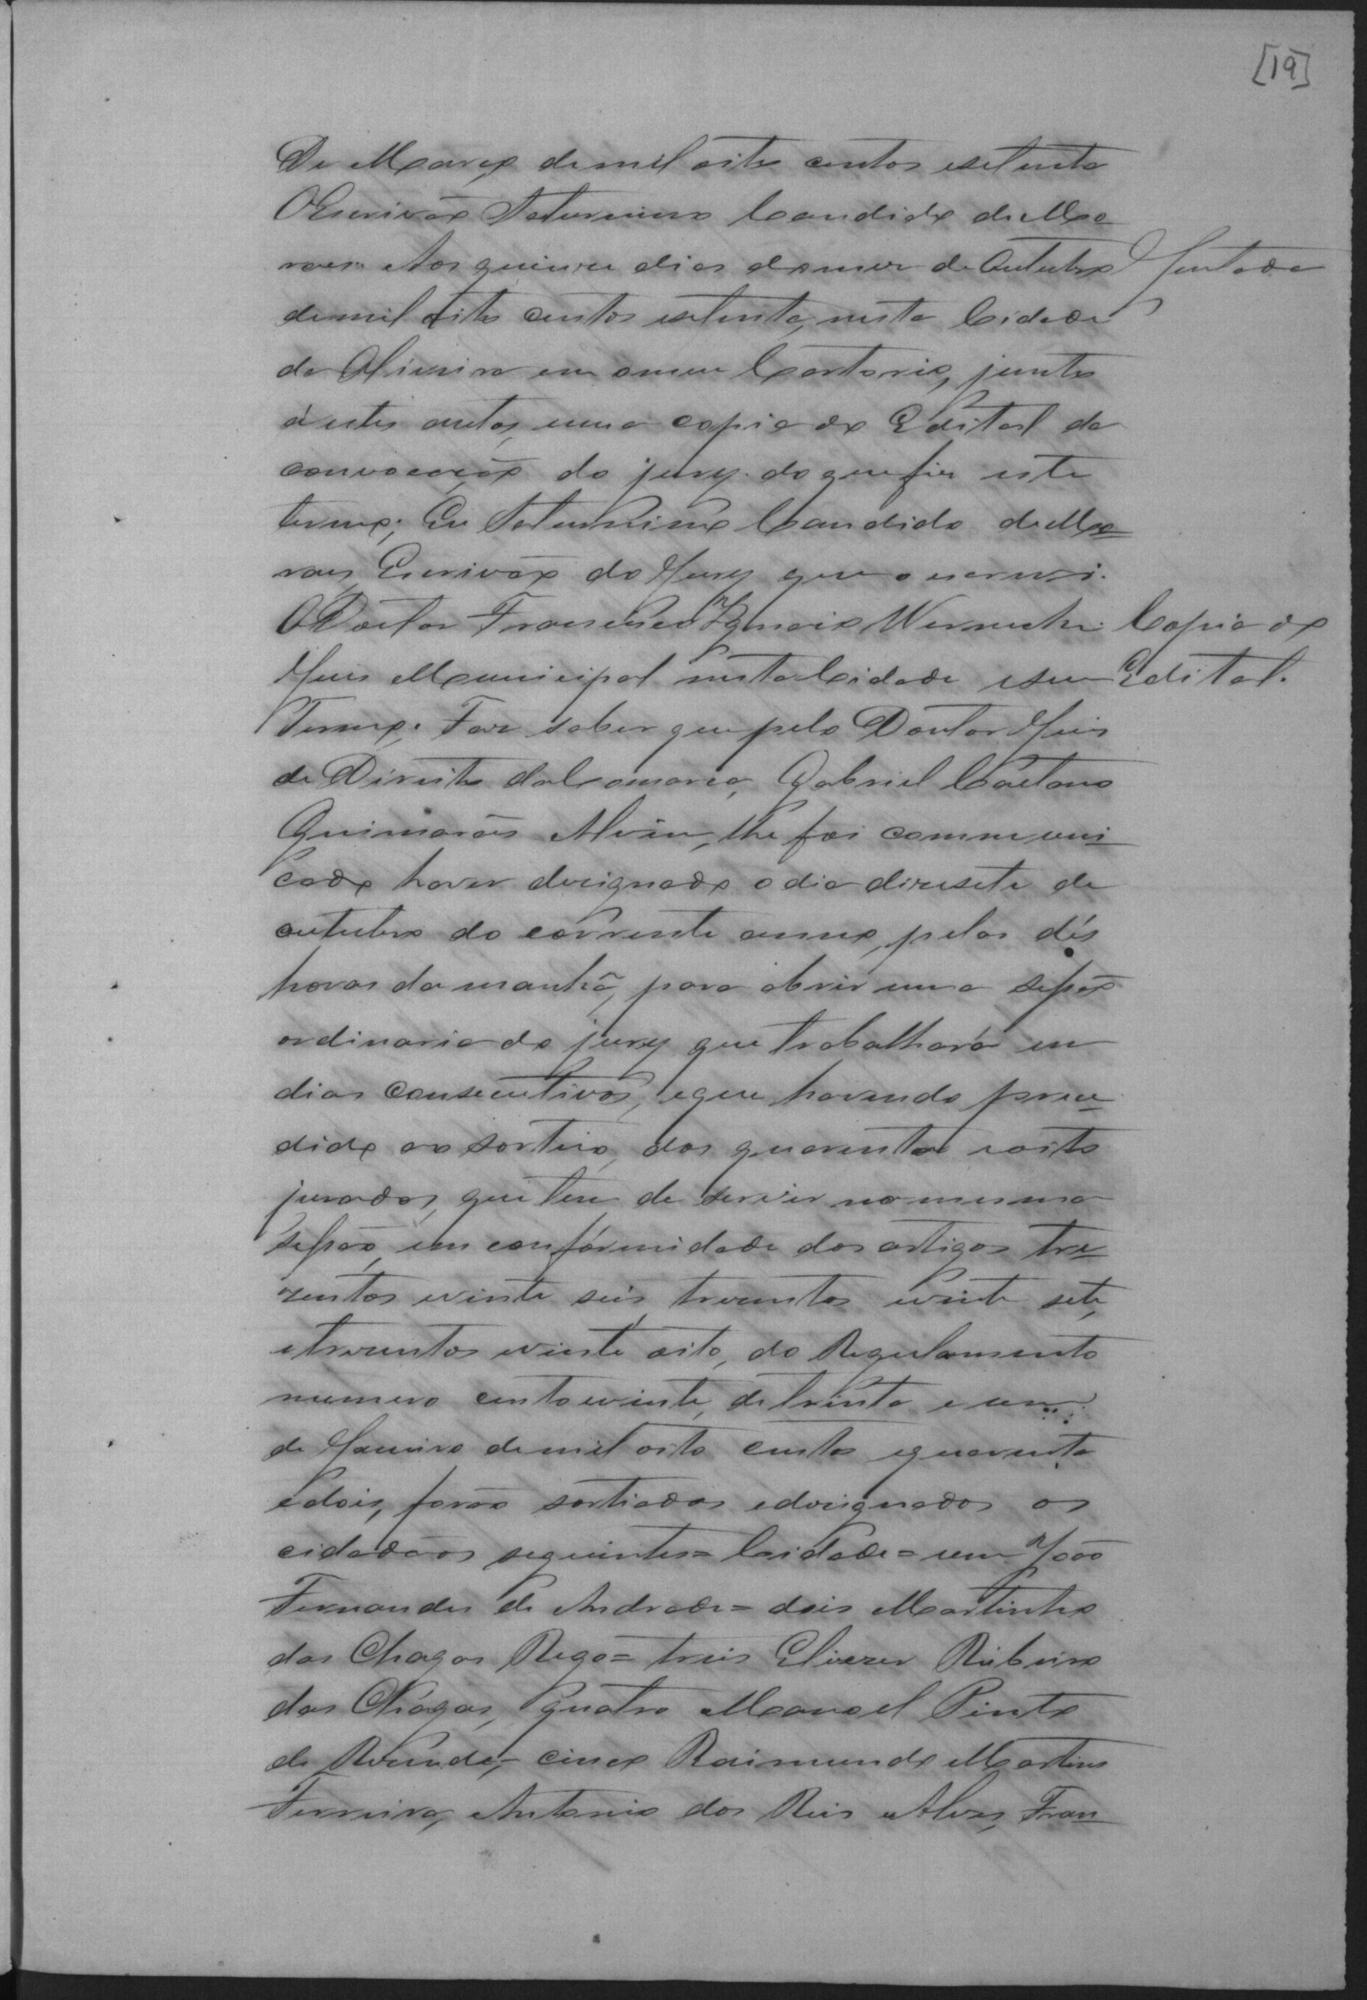 [19]
De Março de mil oito centos e setenta
O Escrivão Saturnino Candido de Mo
raes. Aos quinze dias do mez de Outubro Juntada
de mil oito centos e setenta, nesta Cidade
de Oliveira em o meu Cartorio, junto
á estes autos, uma copia do Edital da
convocação do jury. do que fiz este
termo; Eu Saturnino Candido de Mo
raes, Escrivão do Jury que o escrevi.
O Doutor Francisco Ignacio Werneck. Copia do
Juis Municipal nesta Cidade e seu Edital.
Termo; Faz saber que pelo Doutor Juis
de Direito da Comarca, Gabriel Caetano
Guimarães Alvim, lhe foi communi
cado haver designado o dia dizesete de
outubro do corrente anno, pelas dés
horas da manhã, para abrir uma sessão
ordinaria do jury que trabalhará em
dias consecutivos, e que havendo proce
dido ao sorteio, dos quarenta e oito
jurados, que tem de servir na mesma
sessão, em confórmidade dos artigos tre
zentos vinte seis, trezentos vinte sete,
e trezentos vinte oito, do Regulamento
numero cento e vinte, de trinta e um
de Janeiro de mil oito centos e quarenta
e dois, forão sortiados e designados os
cidadãos seguintes = Cidade = um João
Fernandes de Andrade = dois Martinho
das Chagas Rego = treis Eliezer Ribeiro
das Chagas, quatro Manoel Pinto
de Rezende, cinco Raimundo Martins
Ferreira, Antonio dos Reis e Alves, Fran